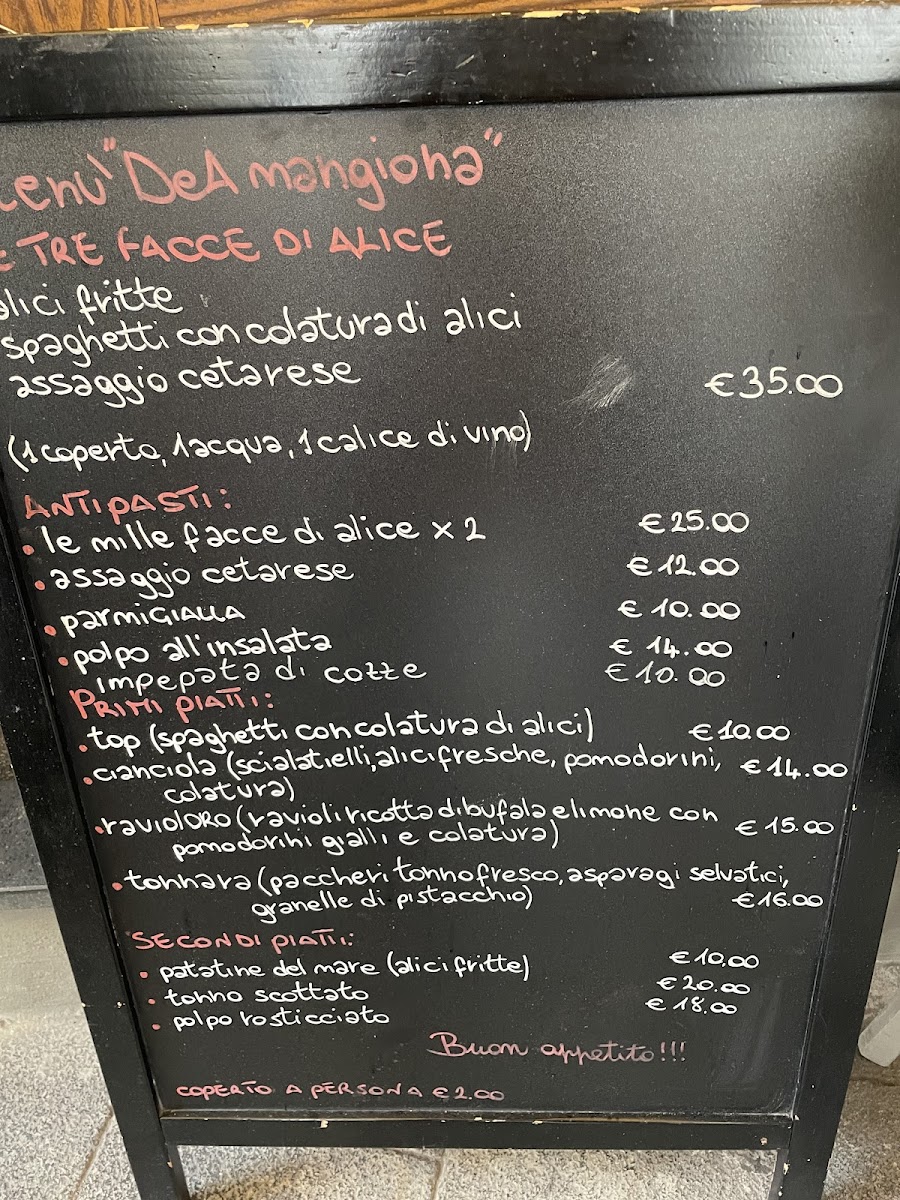 enu' "DeA mangiona"
E TRE FACCE DI ALICE
alici fritte
spaghetti con colatura di alici
assaggio cetarese €35.00
(1 coperto, 1 acqua, 1 calice di vino)
ANTIPASTI:
• le mille facce di alice x 2 €25.00
• assaggio cetarese €12.00
• parmiGIALLA €10.00
• polpo all'insalata €14.00
impepata di cozze €10.00
PRIMI PIATTI:
• top (spaghetti con colatura di alici) €10.00
• cianciola (scialatielli, alici fresche, pomodorini, €14.00
colatura)
• raviolORO (ravioli ricotta di bufala e limone con €15.00
pomodorini gialli e colatura)
• tonnara (paccheri tonno fresco, asparagi selvatici,
granelle di pistacchio) €16.00
SECONDI PIATTI:
• patatine del mare (alici fritte) €10.00
• tonno scottato €20.00
• polpo rosticciato €18.00
Buon appetito!!!
COPERTO A PERSONA €2.00